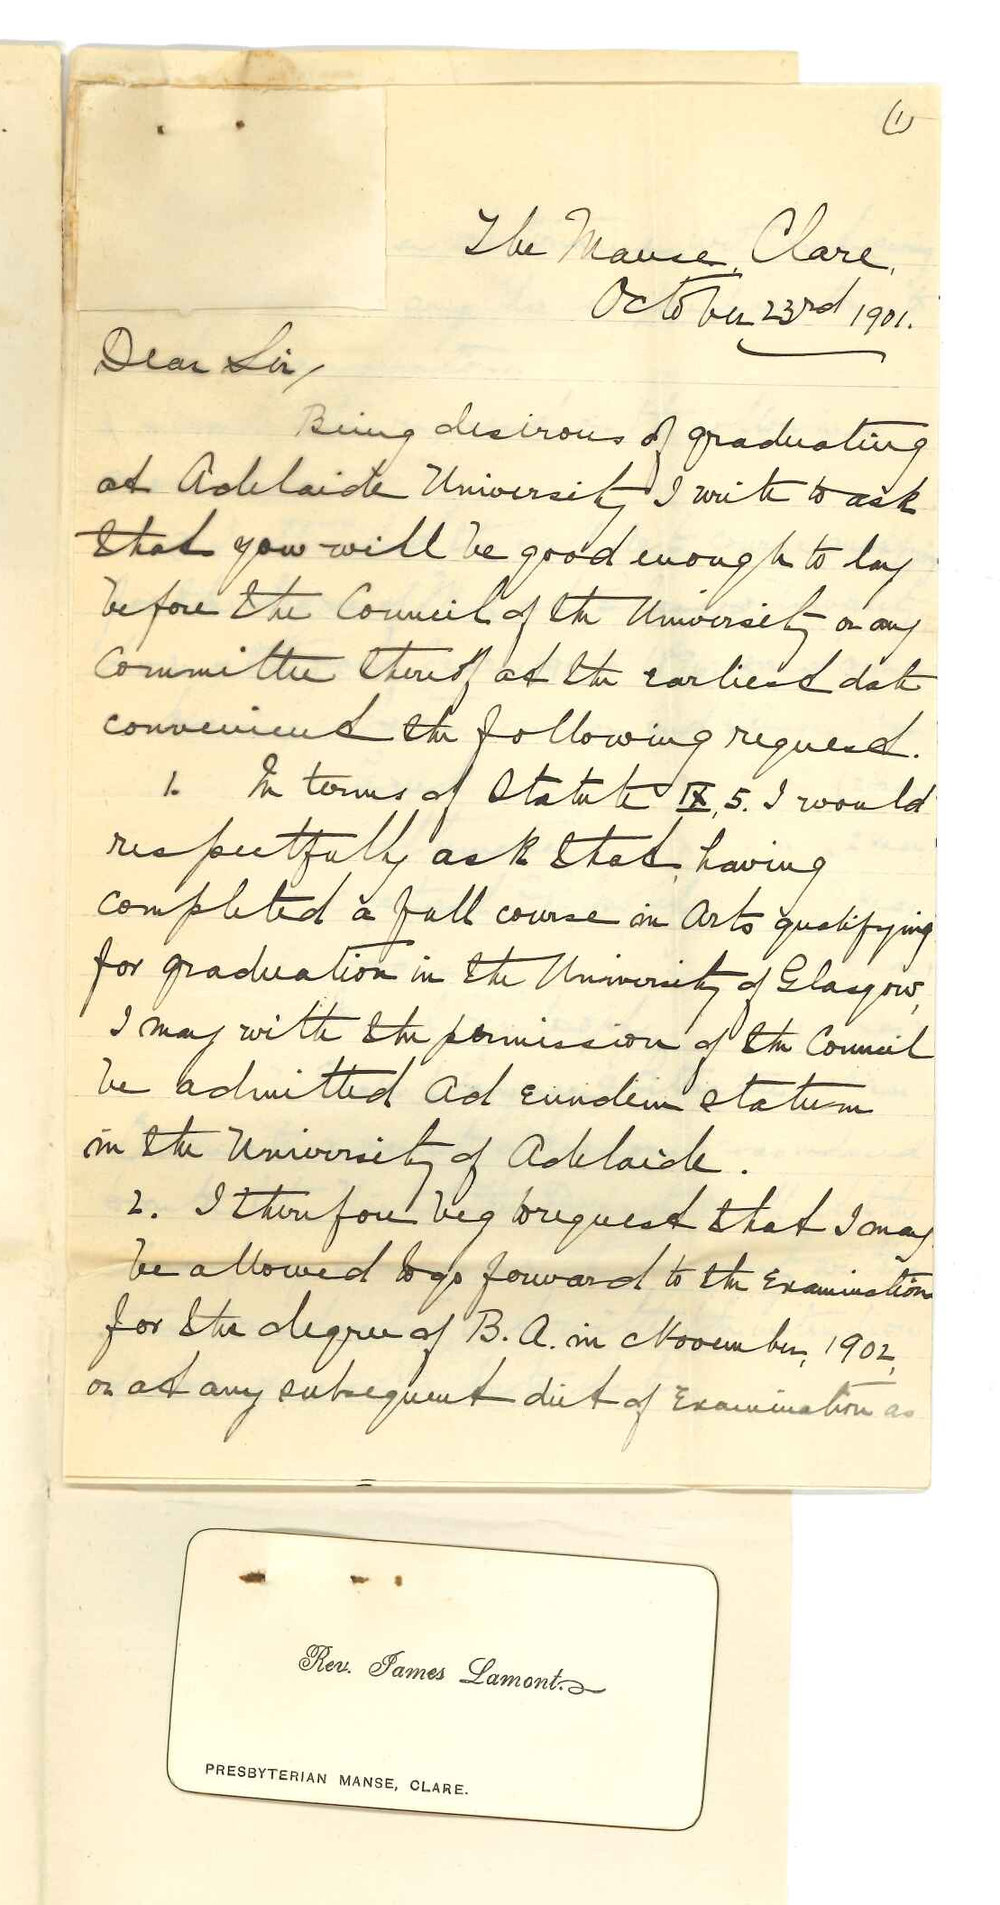 (1)
The Manse, Clare,
October 23rd 1901.
Dear Sir,
Being desirous of graduating
at Adelaide University I write to ask
that you will be good enough to lay
before the Council of the University or any
Committee thereof at the earliest date
convenient the following request.
1. In terms of Statute IX, 5. I would
respectfully ask that, having
completed a full course in Arts qualifying
for graduation in the University of Glasgow,
I may with the permission of the Council
be admitted Ad Eundem Statum
in the University of Adelaide.
2. I therefore beg to request that I may
be allowed to go forward to the Examination
for the degree of B. A. in November, 1902,
or at any subsequent diet of Examination as
Rev. James Lamont.
PRESBYTERIAN MANSE, CLARE.